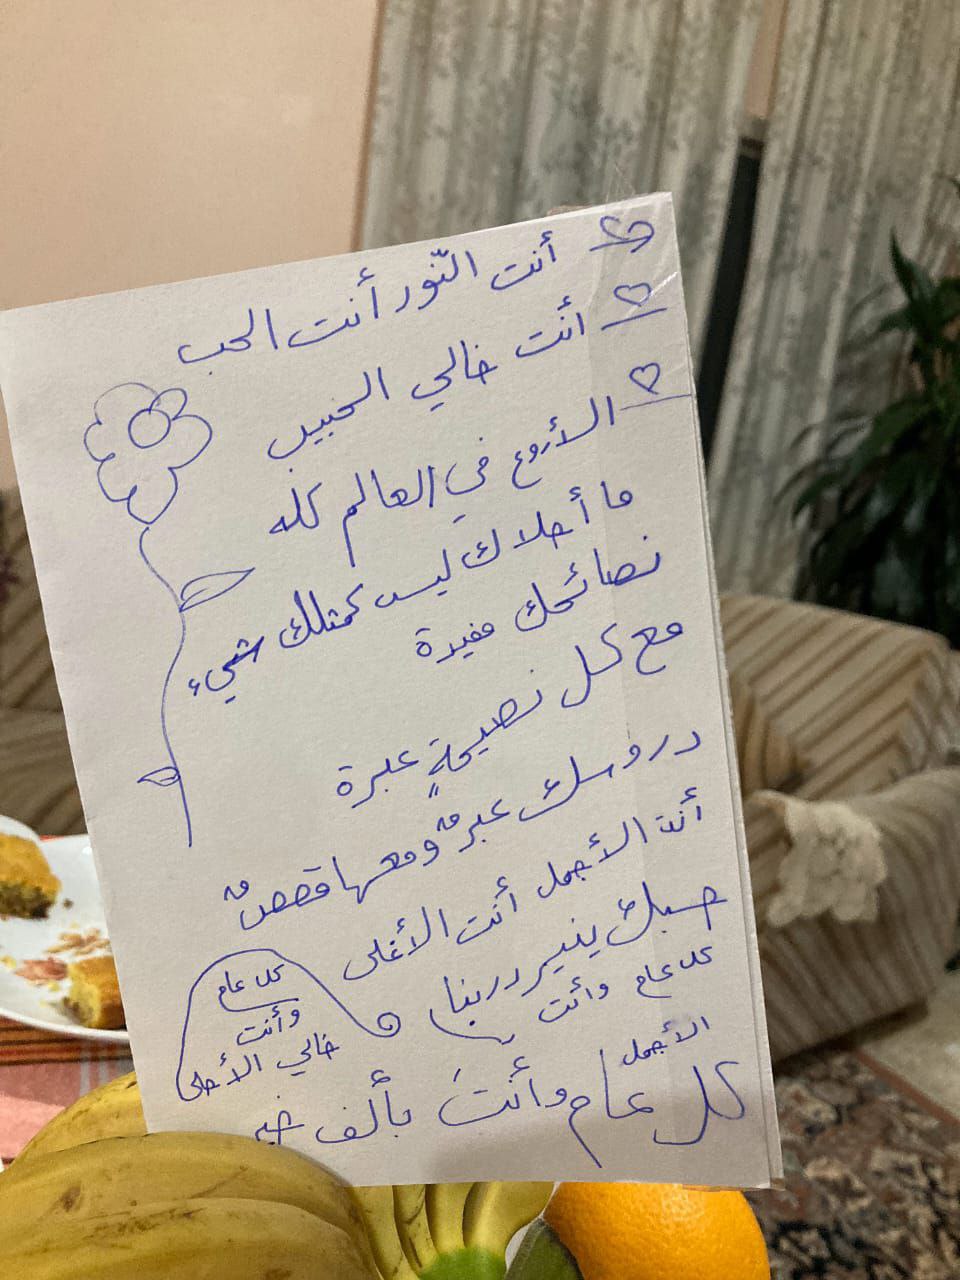 أنت النّور أنت الحب
أنت خالي الحبيب
الأروع في العالم كله
ما أحلاك ليس كمثلك شيء
نصائحك مفيدة
مع كل نصيحةٍ عبرة
دروسك عبرٌ ومعها قصصٌ
أنت الأجمل أنت الأغلى
حبك ينير دربنا
كل عام وأنت
الأجمل
كل عام وأنتَ بألف خير
كل عام
وأنت
خالي الأحلى